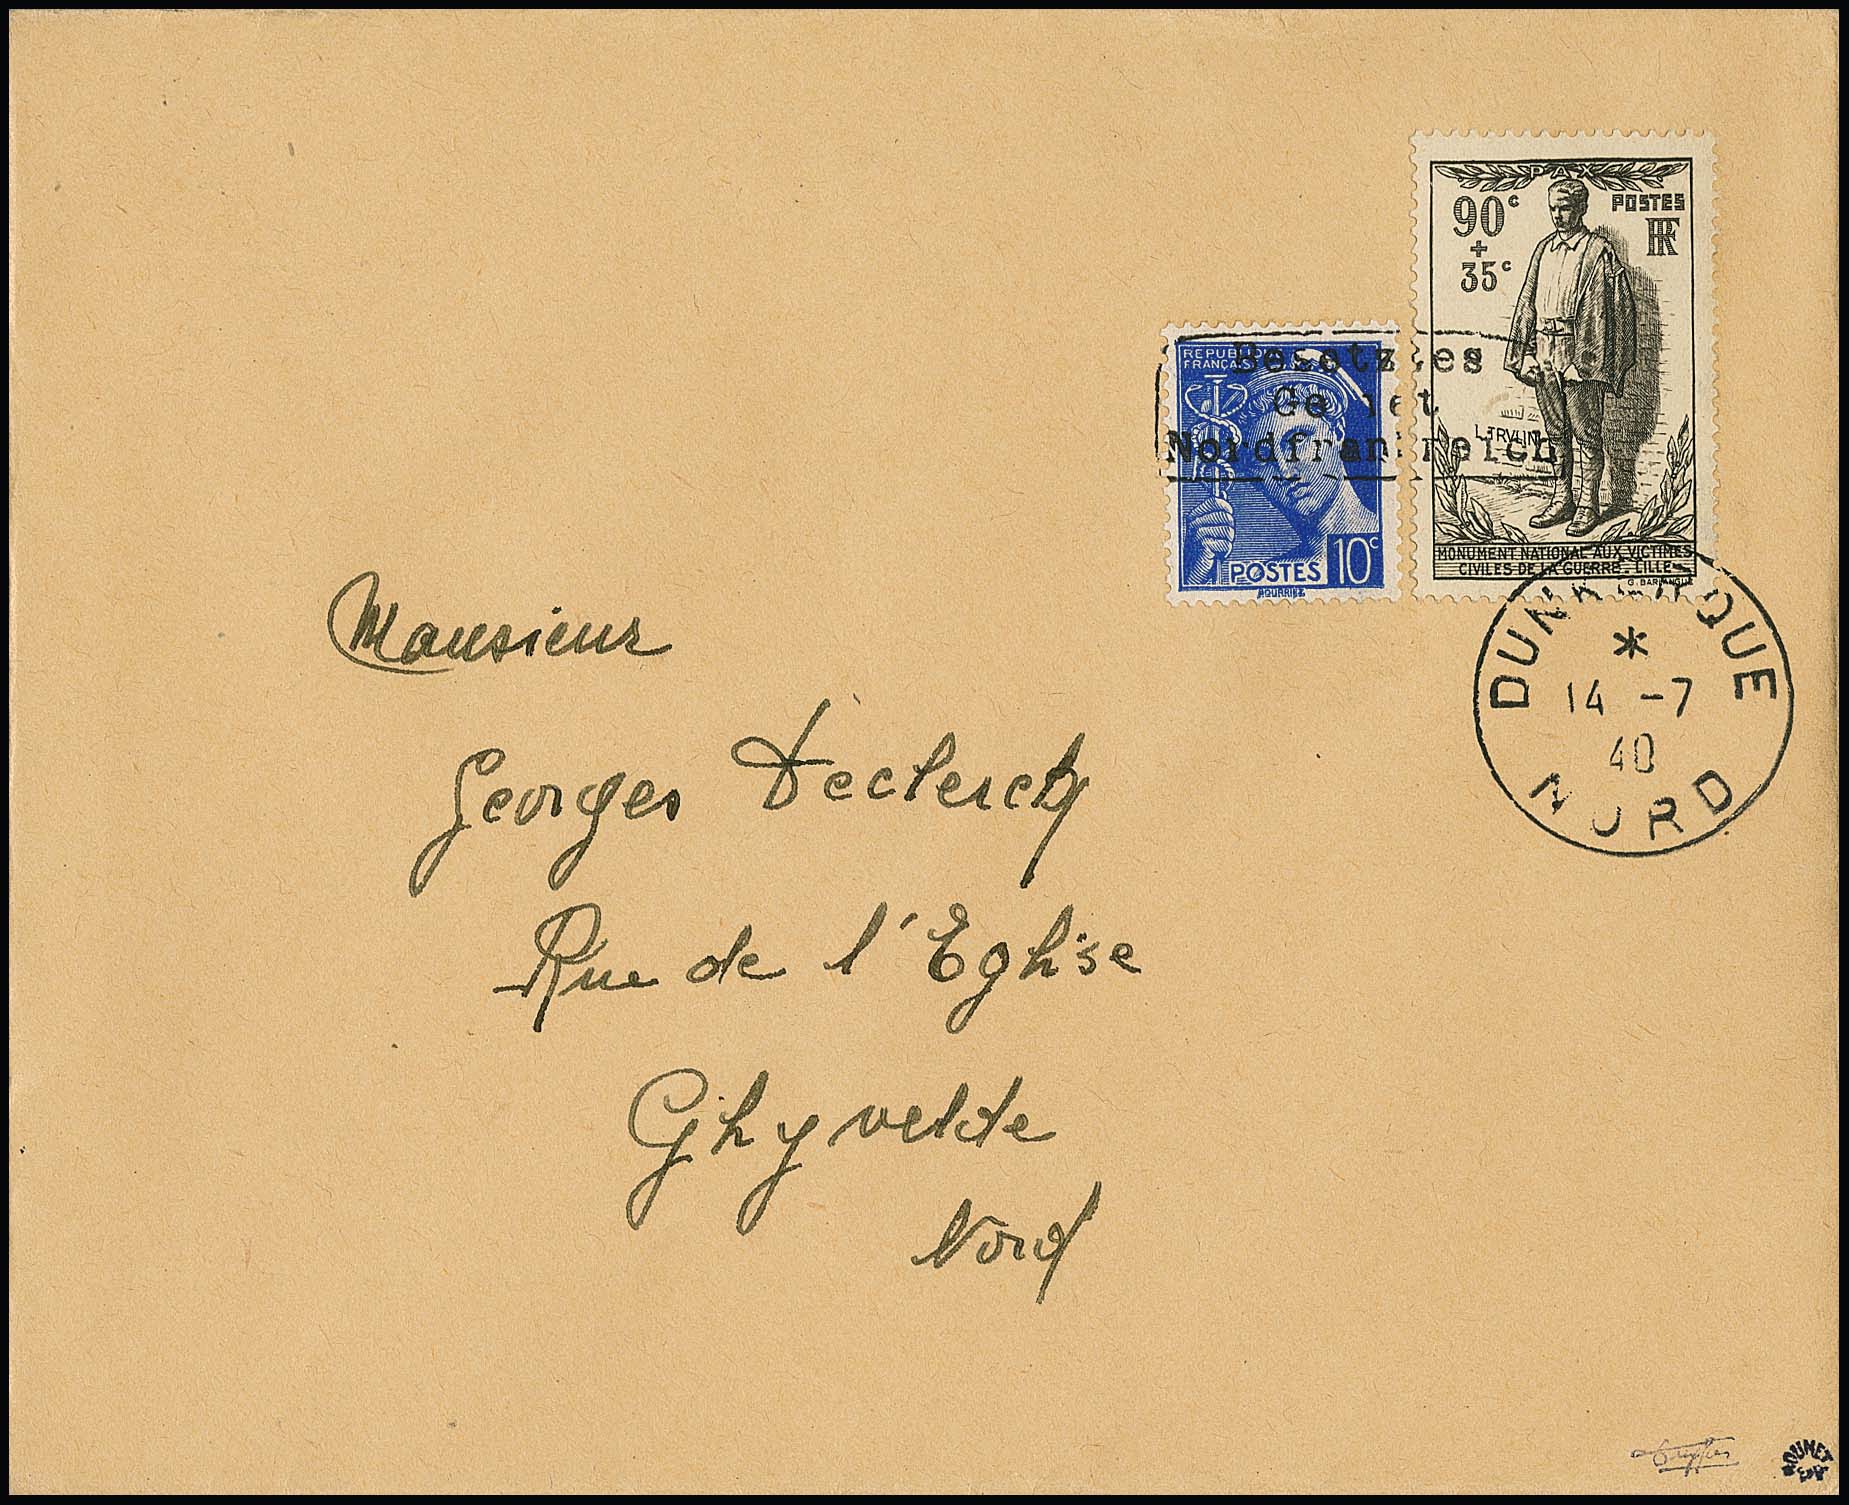 PAX
90c POSTES
+ RF
35c
REPUBLIQUE
FRANÇAISE
Besetztes
Gebiet
Nordfrankreich
L. TRULIN
POSTES 10c
HOURRIEZ
MONUMENT NATIONAL AUX VICTIMES
CIVILES DE LA GUERRE. LILLE
G. BARLANGUE
DUNKERQUE
*
14 -7
40
NORD
Monsieur
Georges Declerck
Rue de l'Eglise
Ghyvelde
Nord